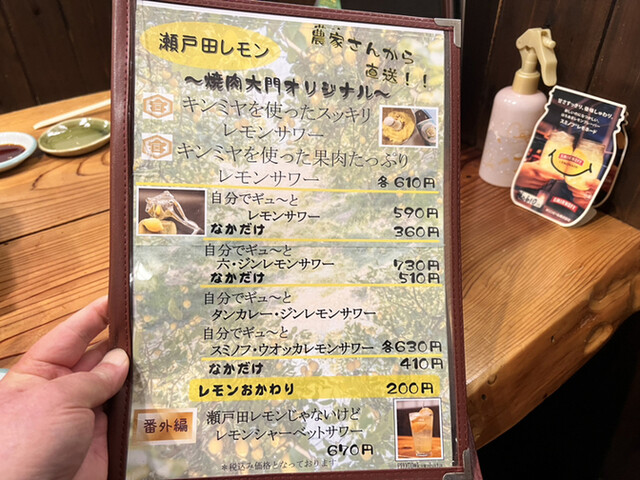 瀬戸田レモン
農家さんから
直送!!
〜焼肉大門オリジナル〜
キンミヤを使ったスッキリ
レモンサワー
キンミヤを使った果肉たっぷり
レモンサワー 各610円
自分でギュ〜と
レモンサワー 590円
なかだけ 360円
自分でギュ〜と
六・ジンレモンサワー 730円
なかだけ 510円
自分でギュ〜と
タンカレー・ジンレモンサワー
自分でギュ〜と
スミノフ・ウオッカレモンサワー 各630円
なかだけ 410円
レモンおかわり 200円
番外編
瀬戸田レモンじゃないけど
レモンシャーベットサワー
670円
*税込み価格となっております
甘さすっきり、後味しゅわり。
スミノフレモネード